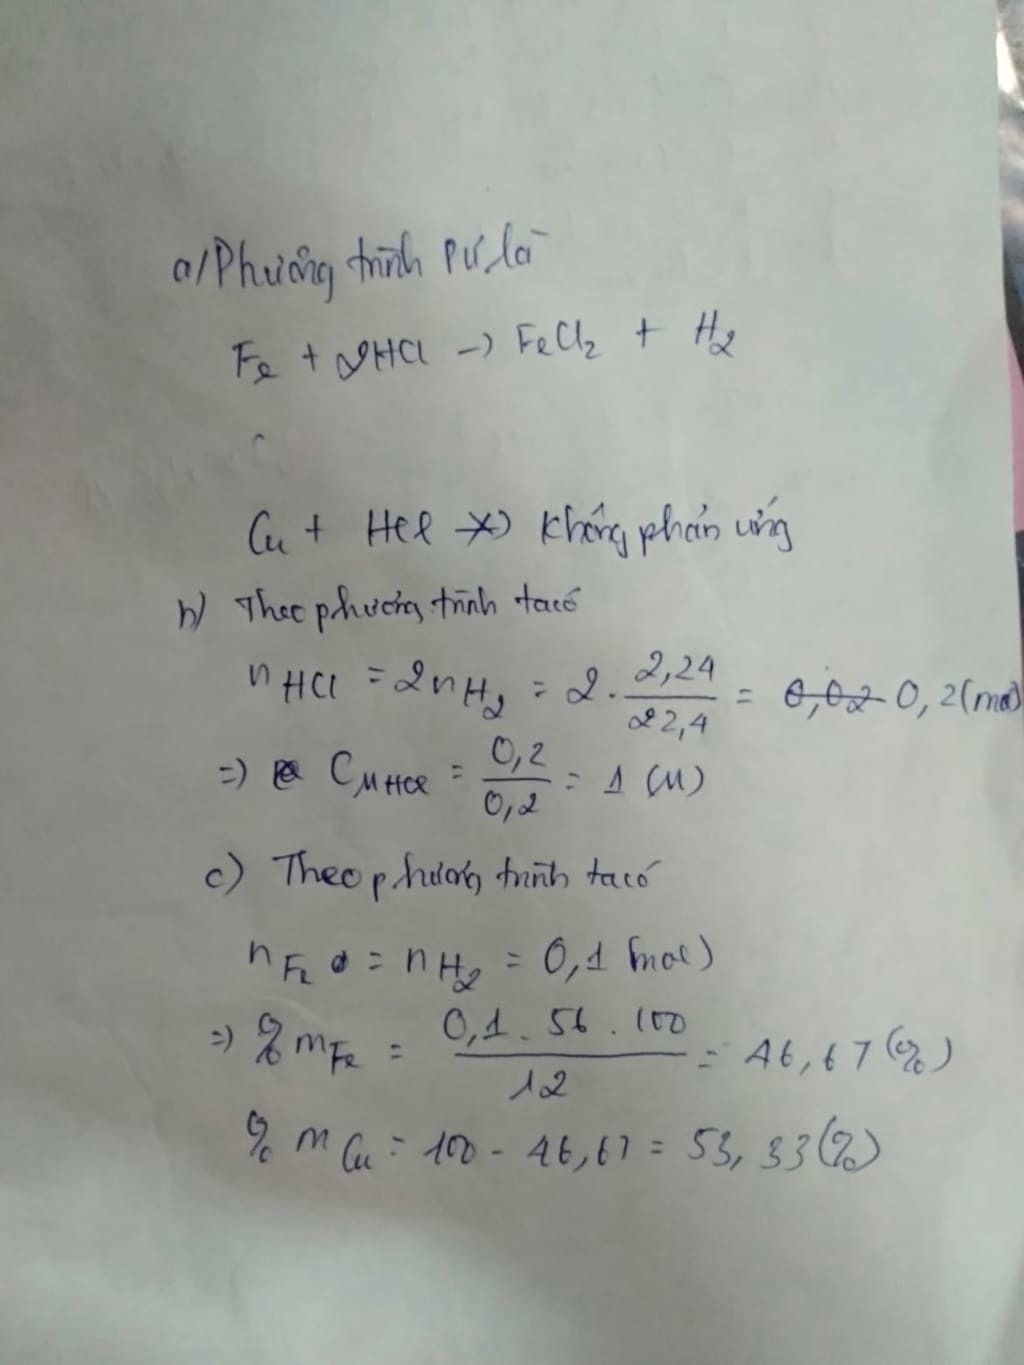 a/Phương trình pư là
Fe + 2HCl -> FeCl2 + H2
Cu + HCl -x> không phản ứng
b) Theo phương trình ta có
nHCl = 2nH2 = 2. 2,24/22,4 = 0,02 0,2(mol)
=> CM HCl = 0,2/0,2 = 1 (M)
c) Theo phương trình ta có
nFe = nH2 = 0,1 (mol)
=> % mFe = 0,1 . 56 . 100/12 = 46,67 (%)
% mCu = 100 - 46,67 = 53,33 (%)